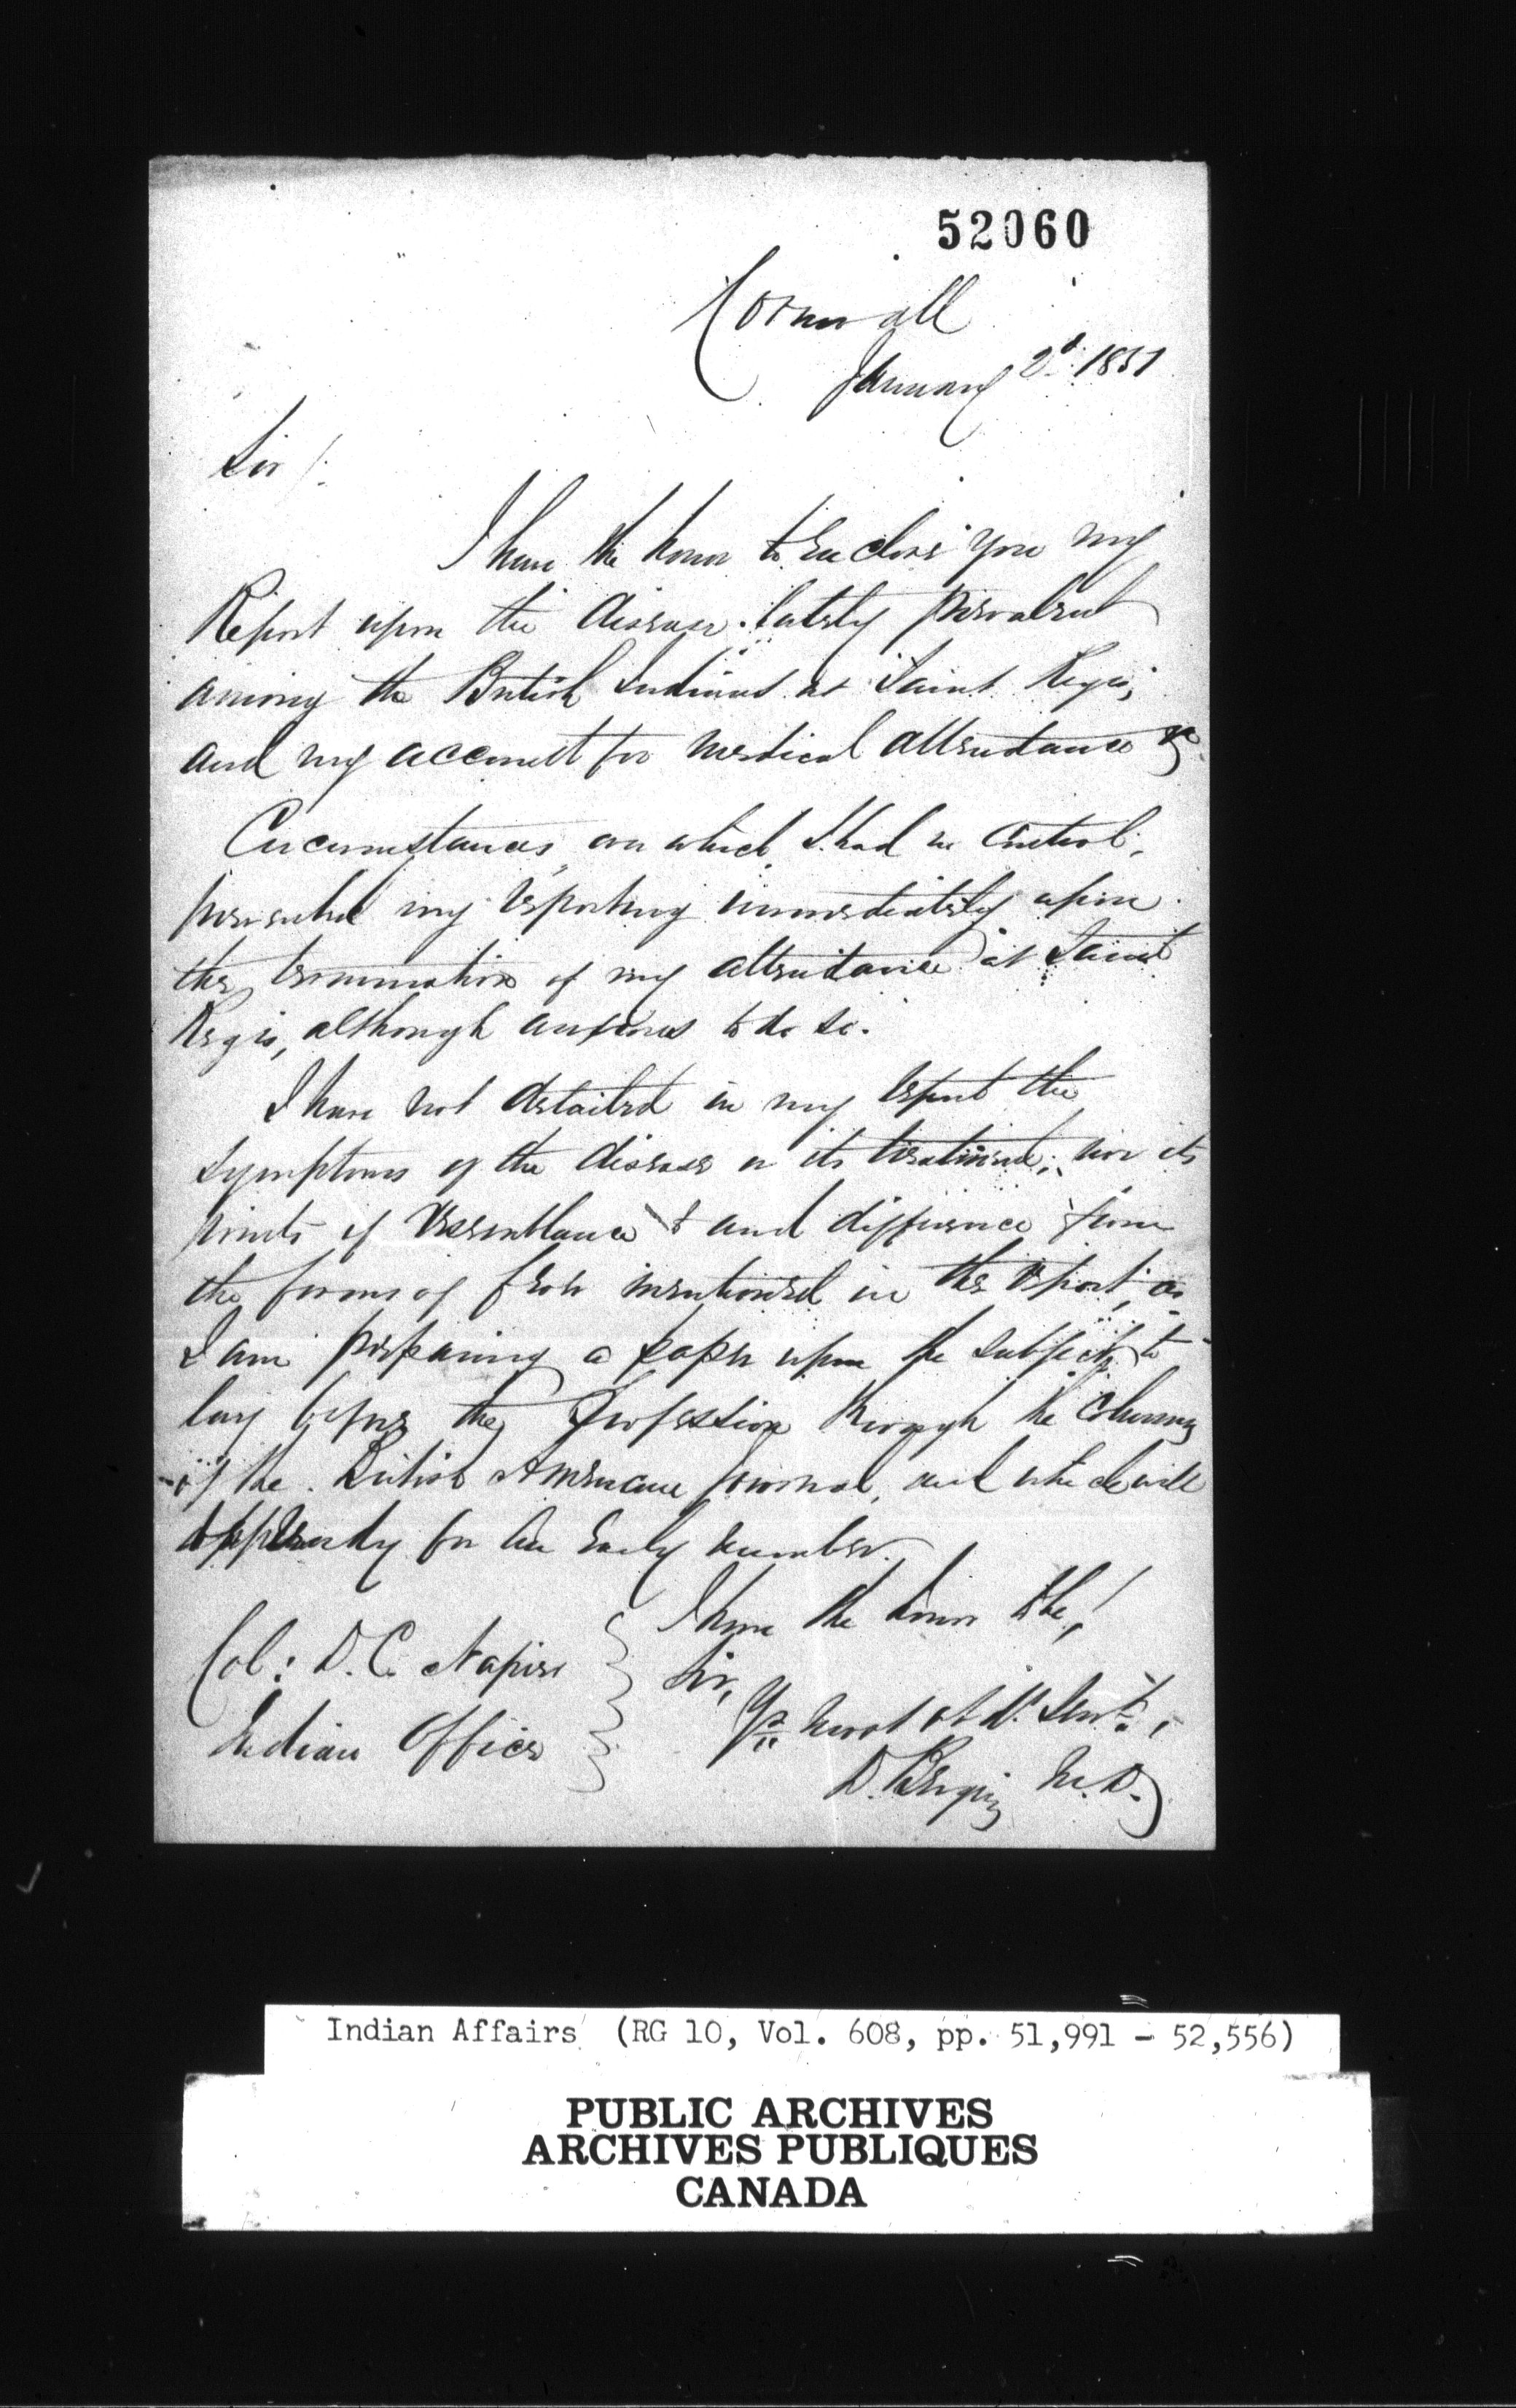 52060
Cornwall
January 2d. 1851
Sir/:
I have the honor to Enclose you my
Report upon the disease lately prevalent
among the British Indians at Saint Regis;
and my account for medical attendance &c.
Circumstances over which I had no control,
prevented my reporting immediately upon
the termination of my attendance at Saint
Regis, although anxious to do so.
I have not detailed in my report the
symptoms of the disease or its treatment; nor its
points of resemblance to and difference from
the forms of fever mentioned in the report, as
I am preparing a paper upon the subject, to
lay before the Profession through the columns
of the British American Journal, and which will
be ready for an early number.
I have the honor to be,
Col: D. C. Napier
Sir,
Yr. most obt. Servt.,
Indian Office
D. Bergin M.D.
Indian Affairs (RG 10, Vol. 608, pp. 51,991 - 52,556)
PUBLIC ARCHIVES
ARCHIVES PUBLIQUES
CANADA